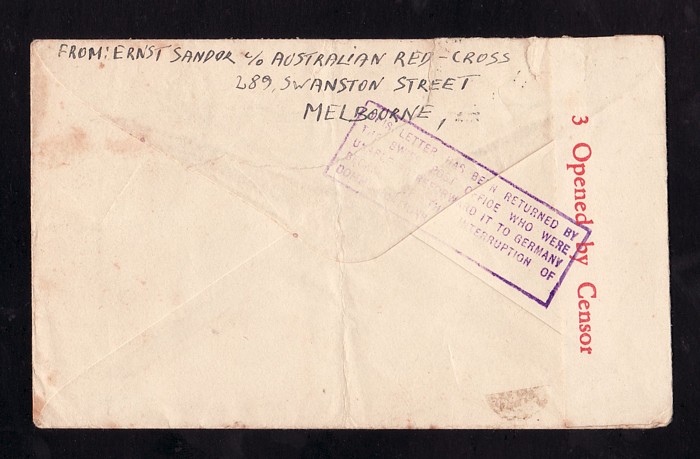 FROM: ERNST SANDOR c/o AUSTRALIAN RED-CROSS
289, SWANSTON STREET
MELBOURNE,
LETTER HAS BEEN RETURNED BY
SWISS POST OFFICE WHO WERE
FORWARD IT TO GERMANY
INTERRUPTION OF
3 Opened by Censor